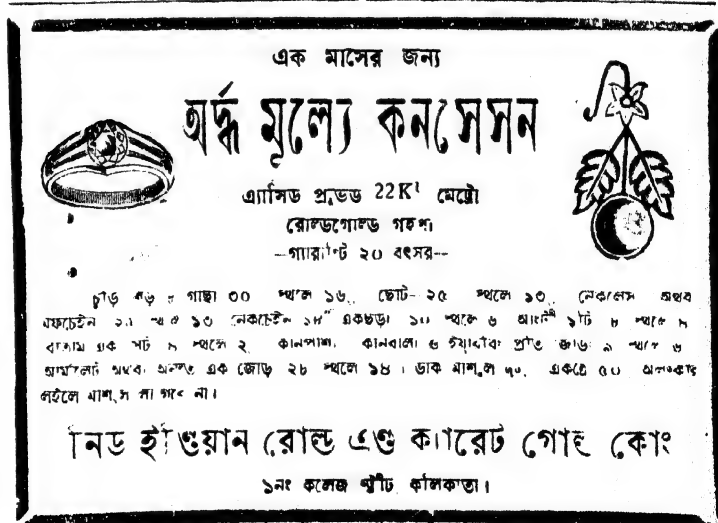 এক মাসের জন্য
অর্দ্ধ মূল্যে কনসেসন
এ্যাসিড প্রুভড 22Kt মেট্রো
রোল্ডগোল্ড গহনা
—গ্যারান্টি ২০ বৎসর—
চুড়ি বড় ৮ গাছা ৩০ স্থলে ১৬, ছোট—২৫ স্থলে ১৩, নেকলেস অথবা
মফচেইন ২৫ স্থলে ১৩ নেকচেইন ১৮" একছড়া ১০ স্থলে ৬ আংটী ১টি ৮ স্থলে ৪
বোতাম এক সেট ৪ স্থলে ২, কানপাশা, কানবালা ও ইয়ারিং প্রতি জোড়া ৯ স্থলে ৬
আর্মলেট অথবা অনন্ত এক জোড়া ২৮ স্থলে ১৪। ডাক মাশুল একত্রে ৫০ অলঙ্কার
লইলে মাশুল লাগিবে না।
নিউ ইণ্ডিয়ান রোল্ড এণ্ড ক্যারেট গোল্ড কোং
১নং কলেজ ষ্ট্রীট কলিকাতা।